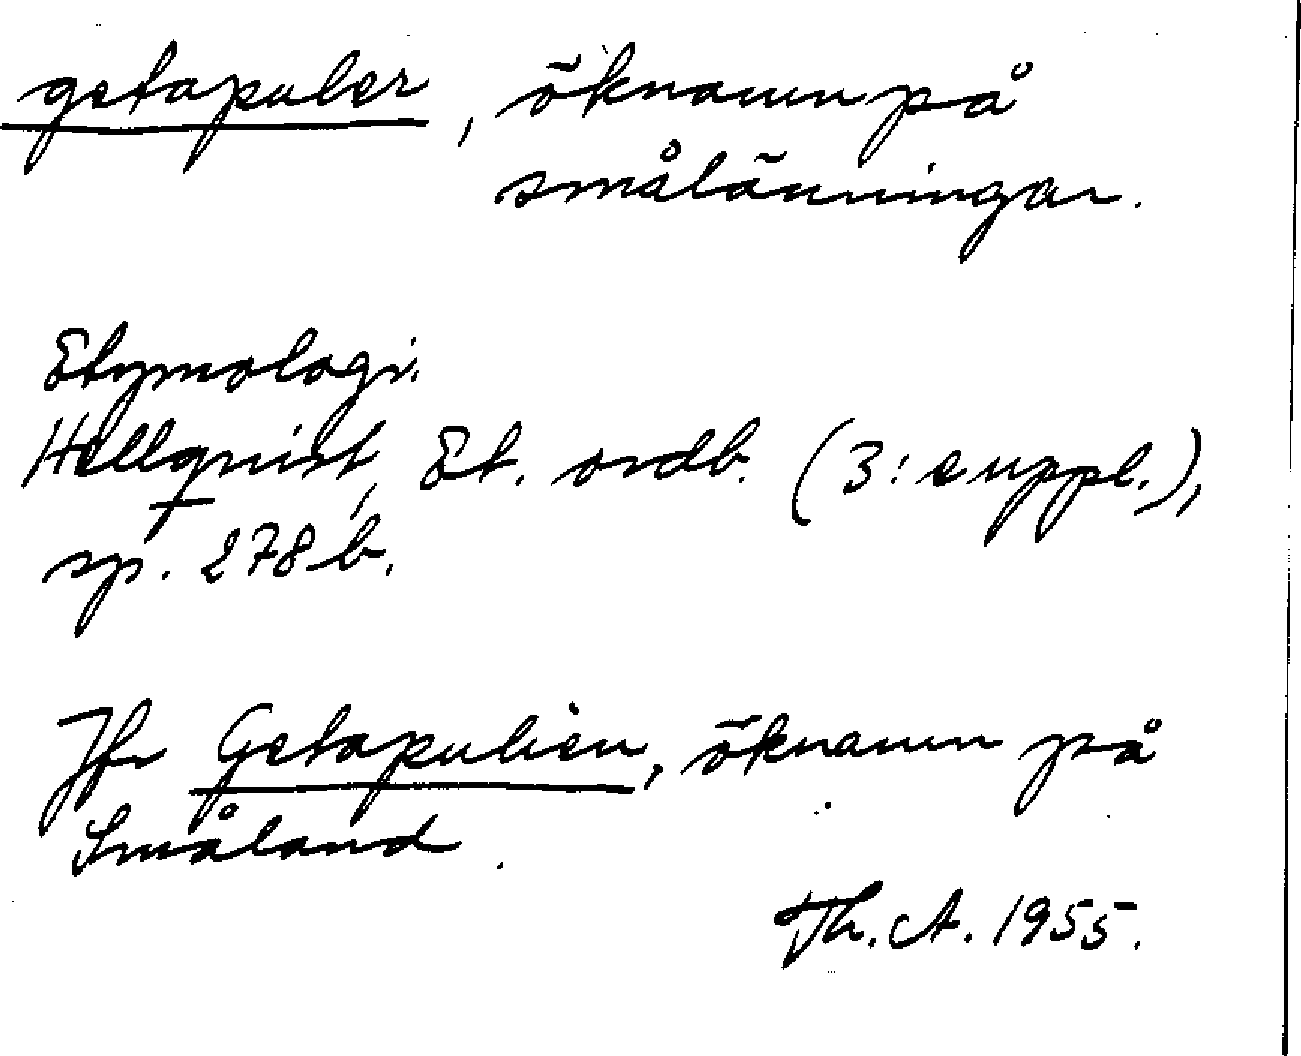 getapuler, öknamn på
smålänningar.
Etymologi.
Hellquist, Et. ordb. (3: suppl.),
sp. 278 b.
Jfr Getapulien, öknamn på
Småland.
Th. A. 1955.